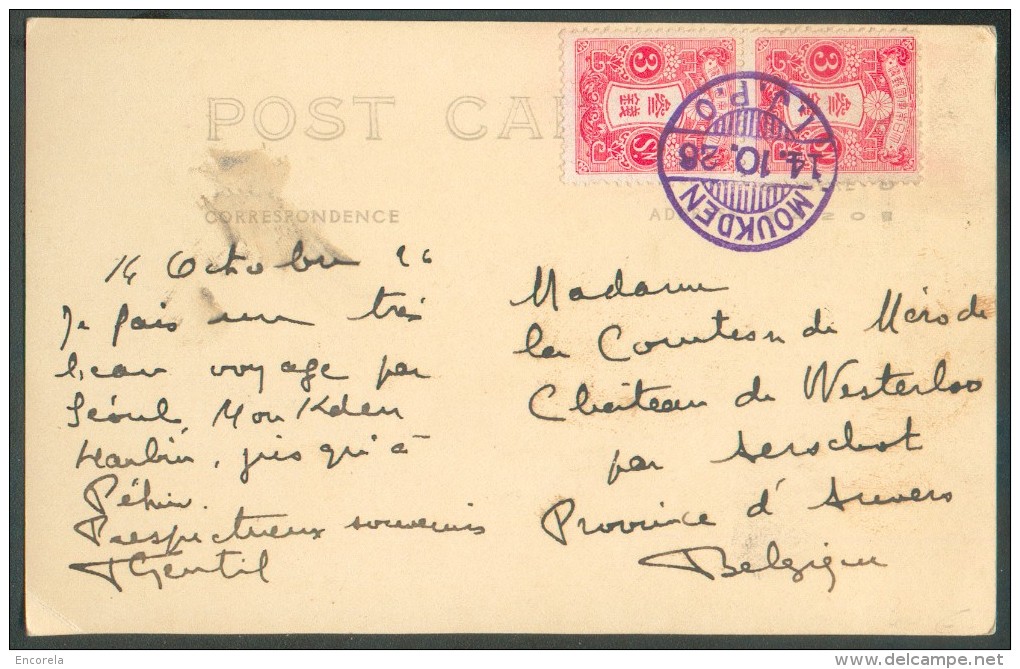 POST CA
3
参銭
SN
3
参銭
SN
MOUKDEN
14.10.26
I.J.P.O
CORRESPONDENCE
AD
14 Octobre 26
Je fais un très
beau voyage par
Séoul, Moukden
Harbin, jusqu'à
Pékin.
Respectueux souvenirs
Gentil
Madame
la Comtesse de Mérode
Château de Westerloo
par Aerschot
Province d'Anvers
Belgique
Encorela
delcampe.net